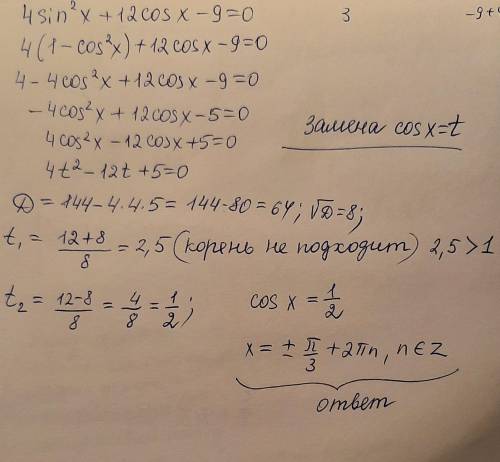 4sin²x + 12cosx - 9 = 0
3
4(1 - cos²x) + 12cosx - 9 = 0
4 - 4cos²x + 12cosx - 9 = 0
- 4cos²x + 12cosx - 5 = 0
4cos²x - 12cosx + 5 = 0
замена cosx = t
4t² - 12t + 5 = 0
D = 144 - 4·4·5 = 144 - 80 = 64; √D = 8;
t₁ = (12+8)/8 = 2,5 (корень не подходит) 2,5 > 1
t₂ = (12-8)/8 = 4/8 = 1/2;
cos x = 1/2
x = ± π/3 + 2πn, n ∈ Z
ответ